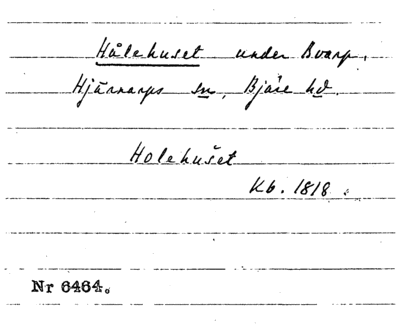 Hålehuset under Bvarp.
Hjärnarps sn, Bjäre hd.
Holehuset
Kb. 1818.
Nr 6464.